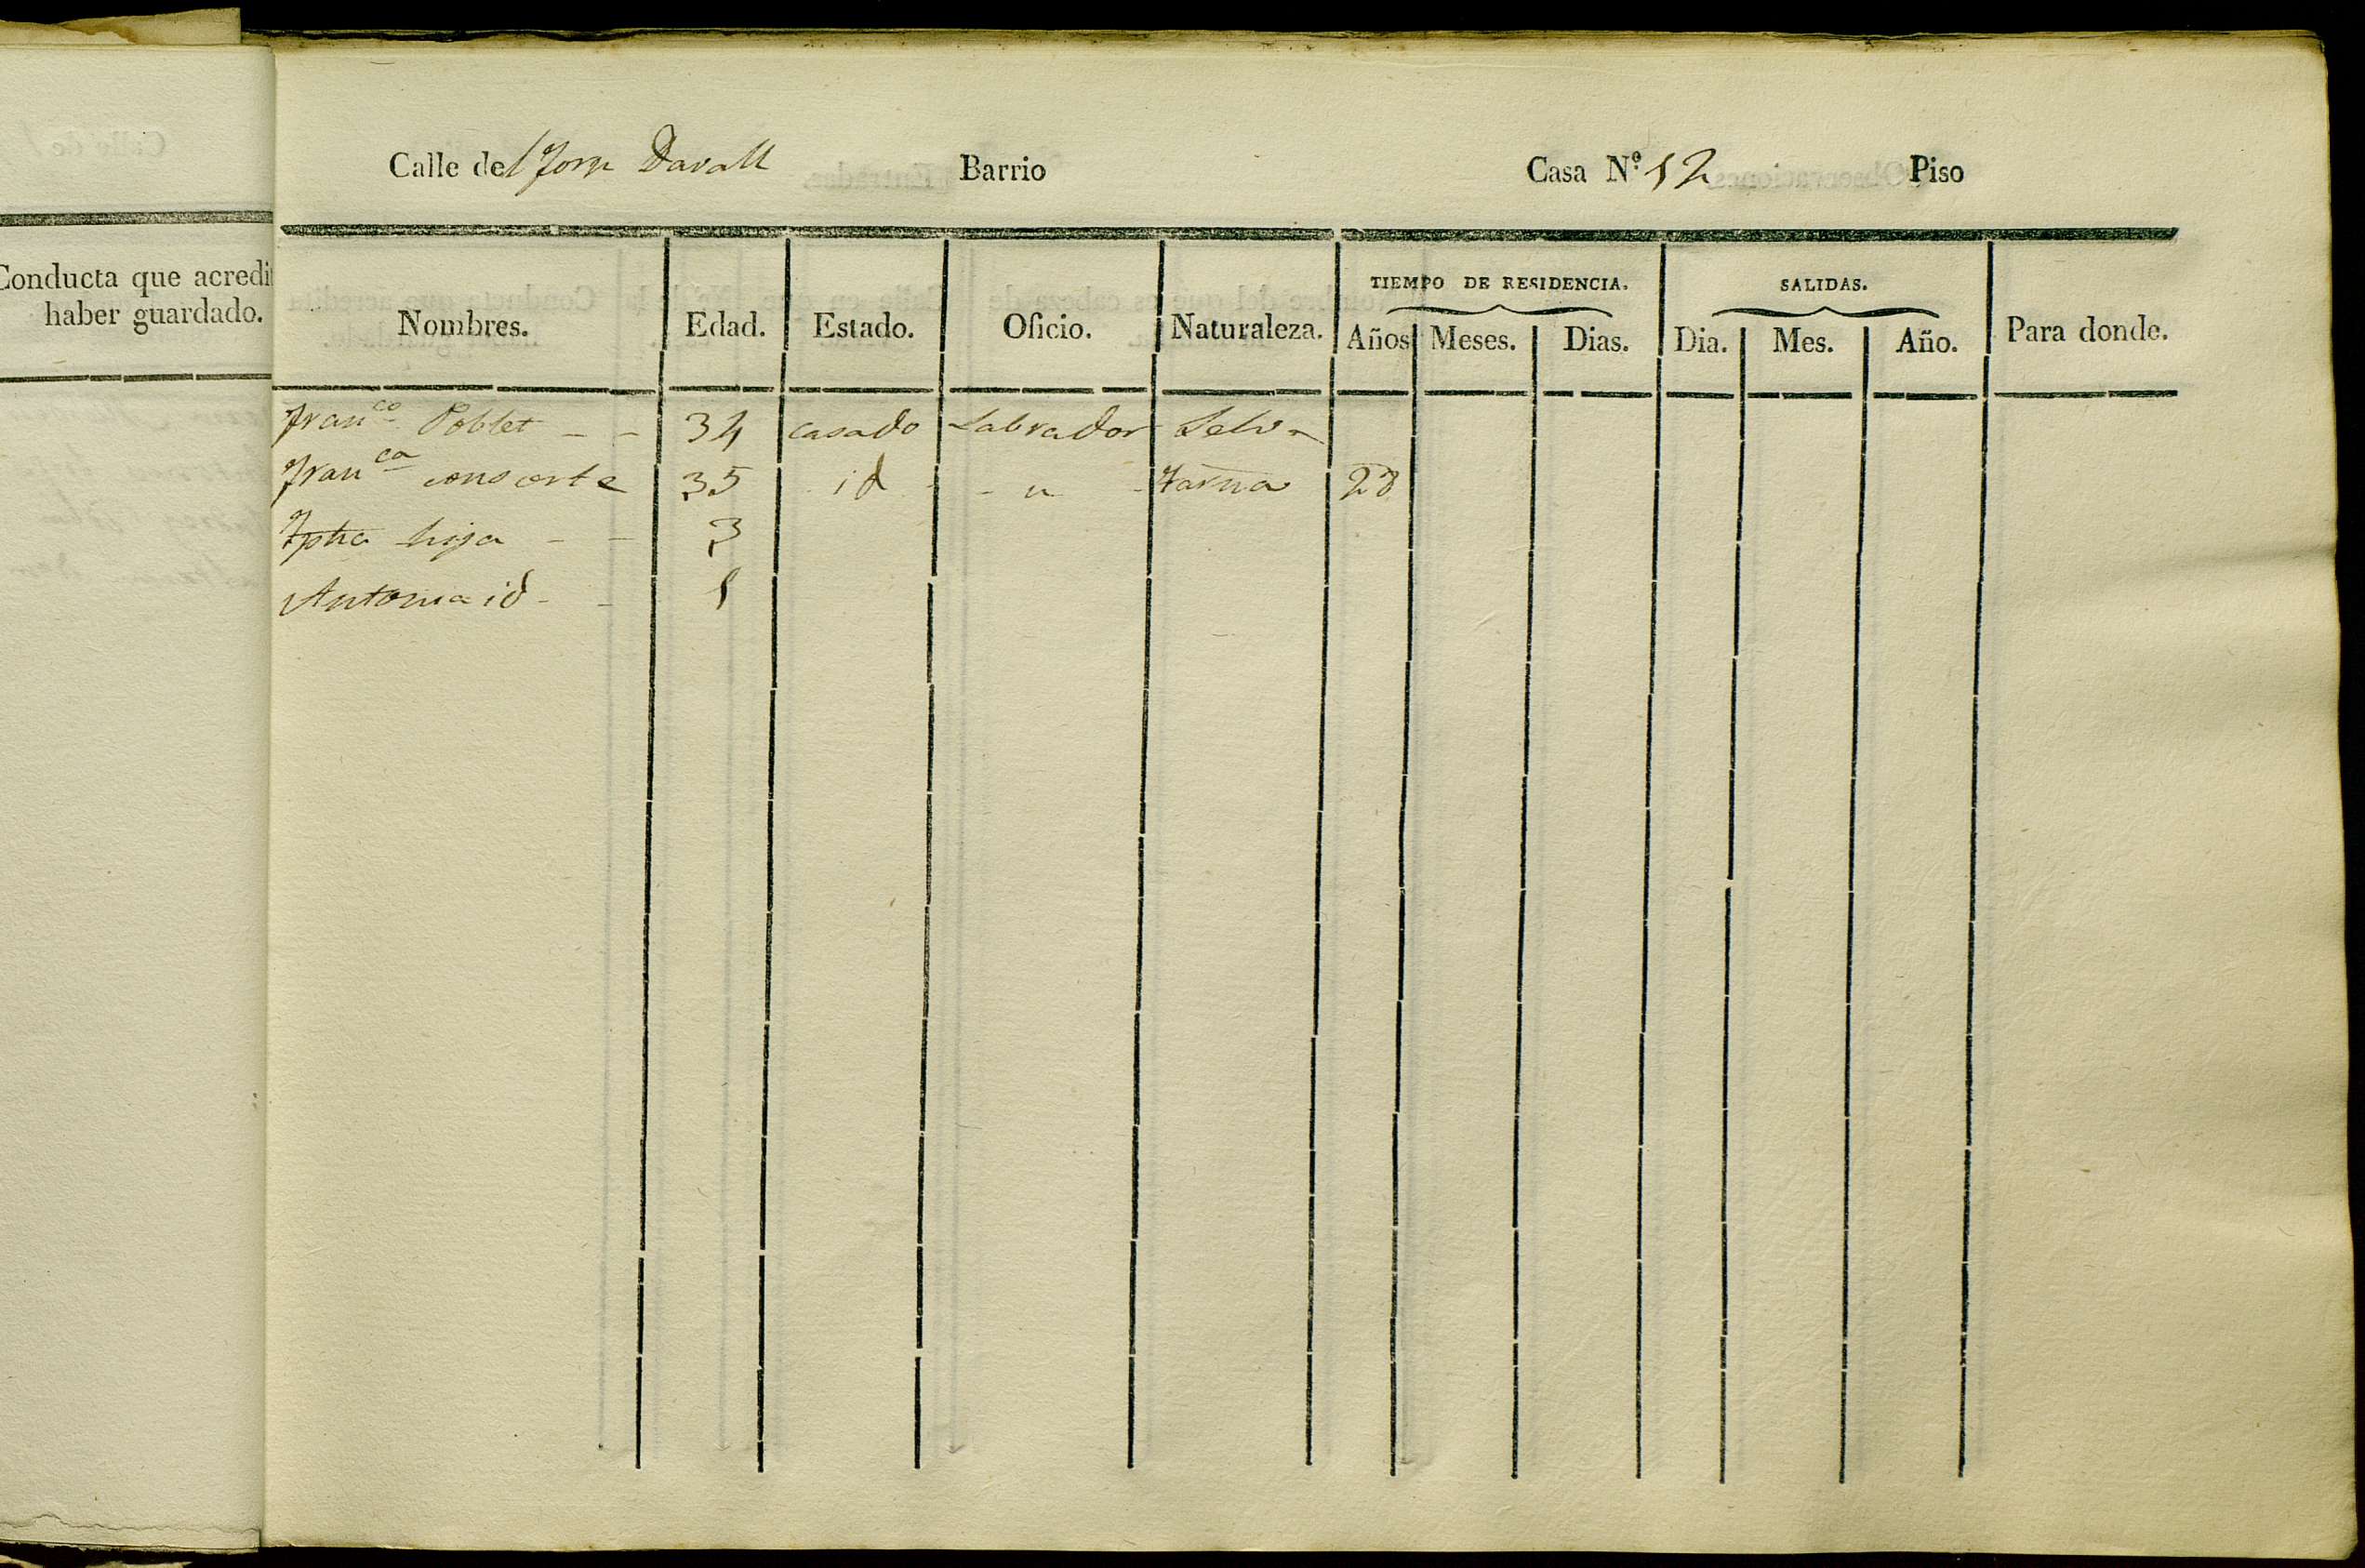 Calle del Forn Davall Barrio Casa N.º 12 Piso
Conducta que acredi
haber guardado.
Nombres. Edad. Estado. Oficio. Naturaleza. TIEMPO DE RESIDENCIA. SALIDAS. Para donde.
Años Meses. Dias. Dia. Mes. Año.
Fran.co Poblet - - 34 casado Labrador Selva
Fran.ca consorte 35 id - - " - Tarna 28
Jpha hija - - 3
Antonia id - - 1